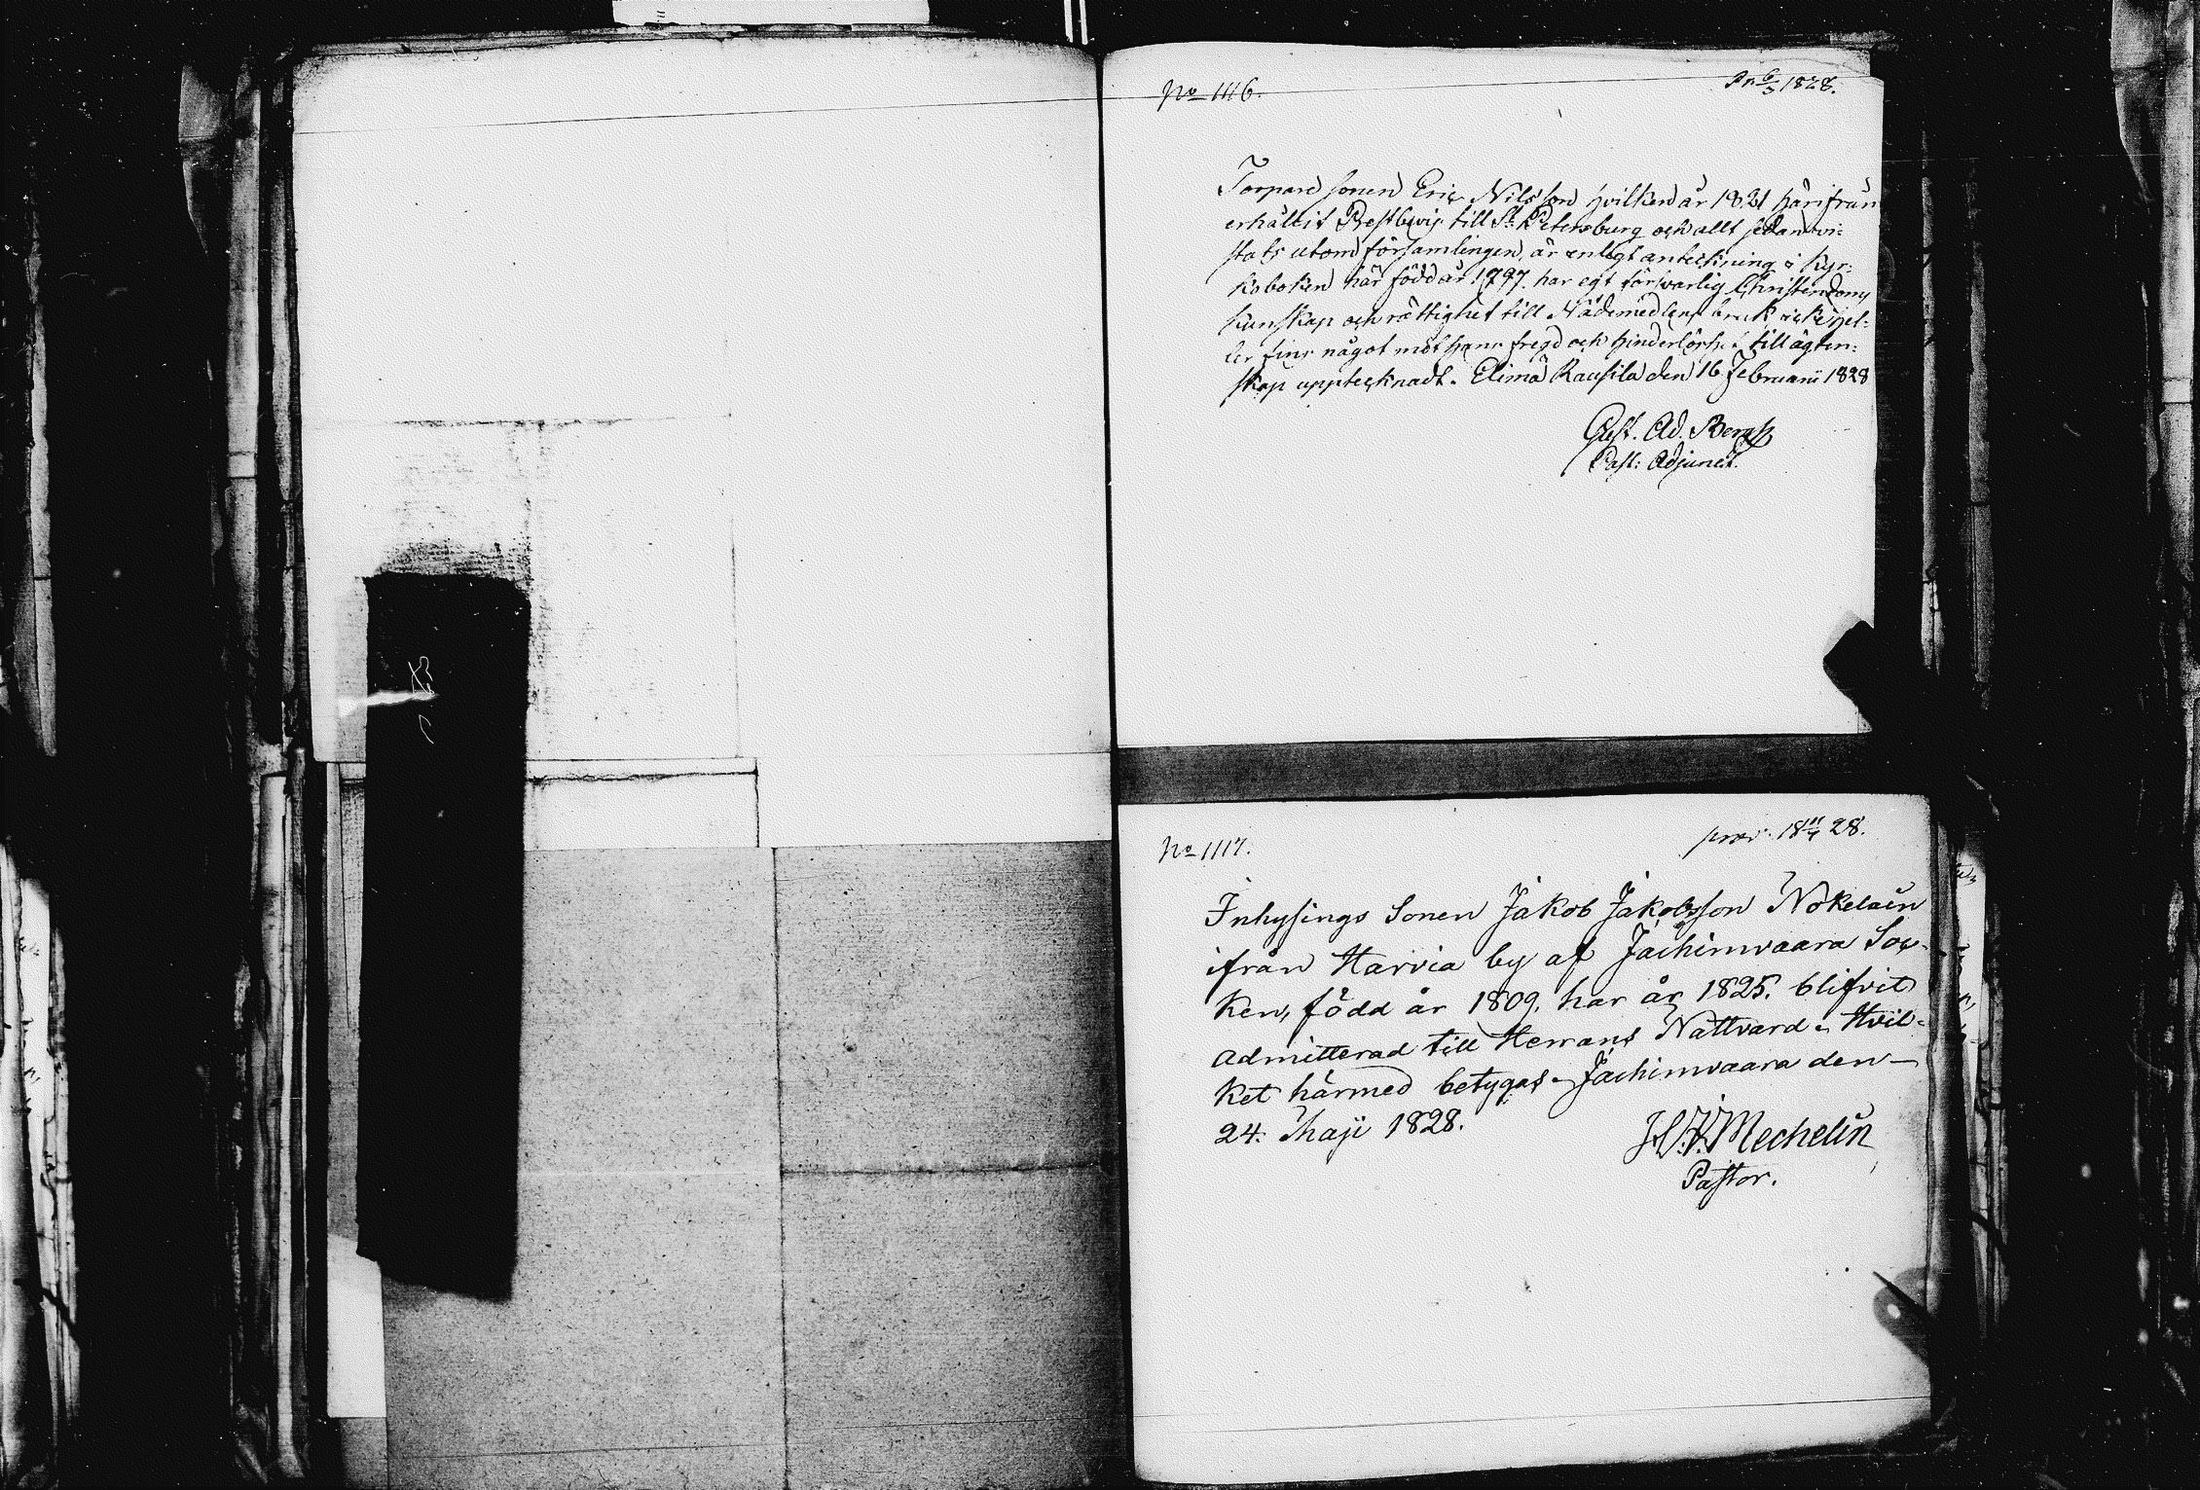 No 1116.
Pr. 6/3 1828.
Torpare sonen Eric Nilsson hvilken år 1821 härifrån
erhållit Prestbevis till St. Petersburg och allt sedan vi-
stats utom församlingen, är enligt anteckning i Kyr-
koboken här född år 1797. har egt försvarlig Christendoms
kunskap och rättighet till Nådemedlens bruk icke hel-
ler fins något mot hans fregd och hinderlöshet till ägten-
skap upptecknadt. Elimä Rausila den 16 Februarii 1828
Gust. Ad. Bergh
Past: Adjunct.
No 1117.
prov. 18 11/7 28.
Inhysings Sonen Jakob Jakobsson Nokelain
ifrån Harvia by af Jächimvaara Soc-
ken, född år 1809. har år 1825. blifvit
admitterad till Herrans Nattvard. Hvil-
ket härmed betygas. Jächimvaara den
24. Maji 1828.
Mechelin
Pastor.